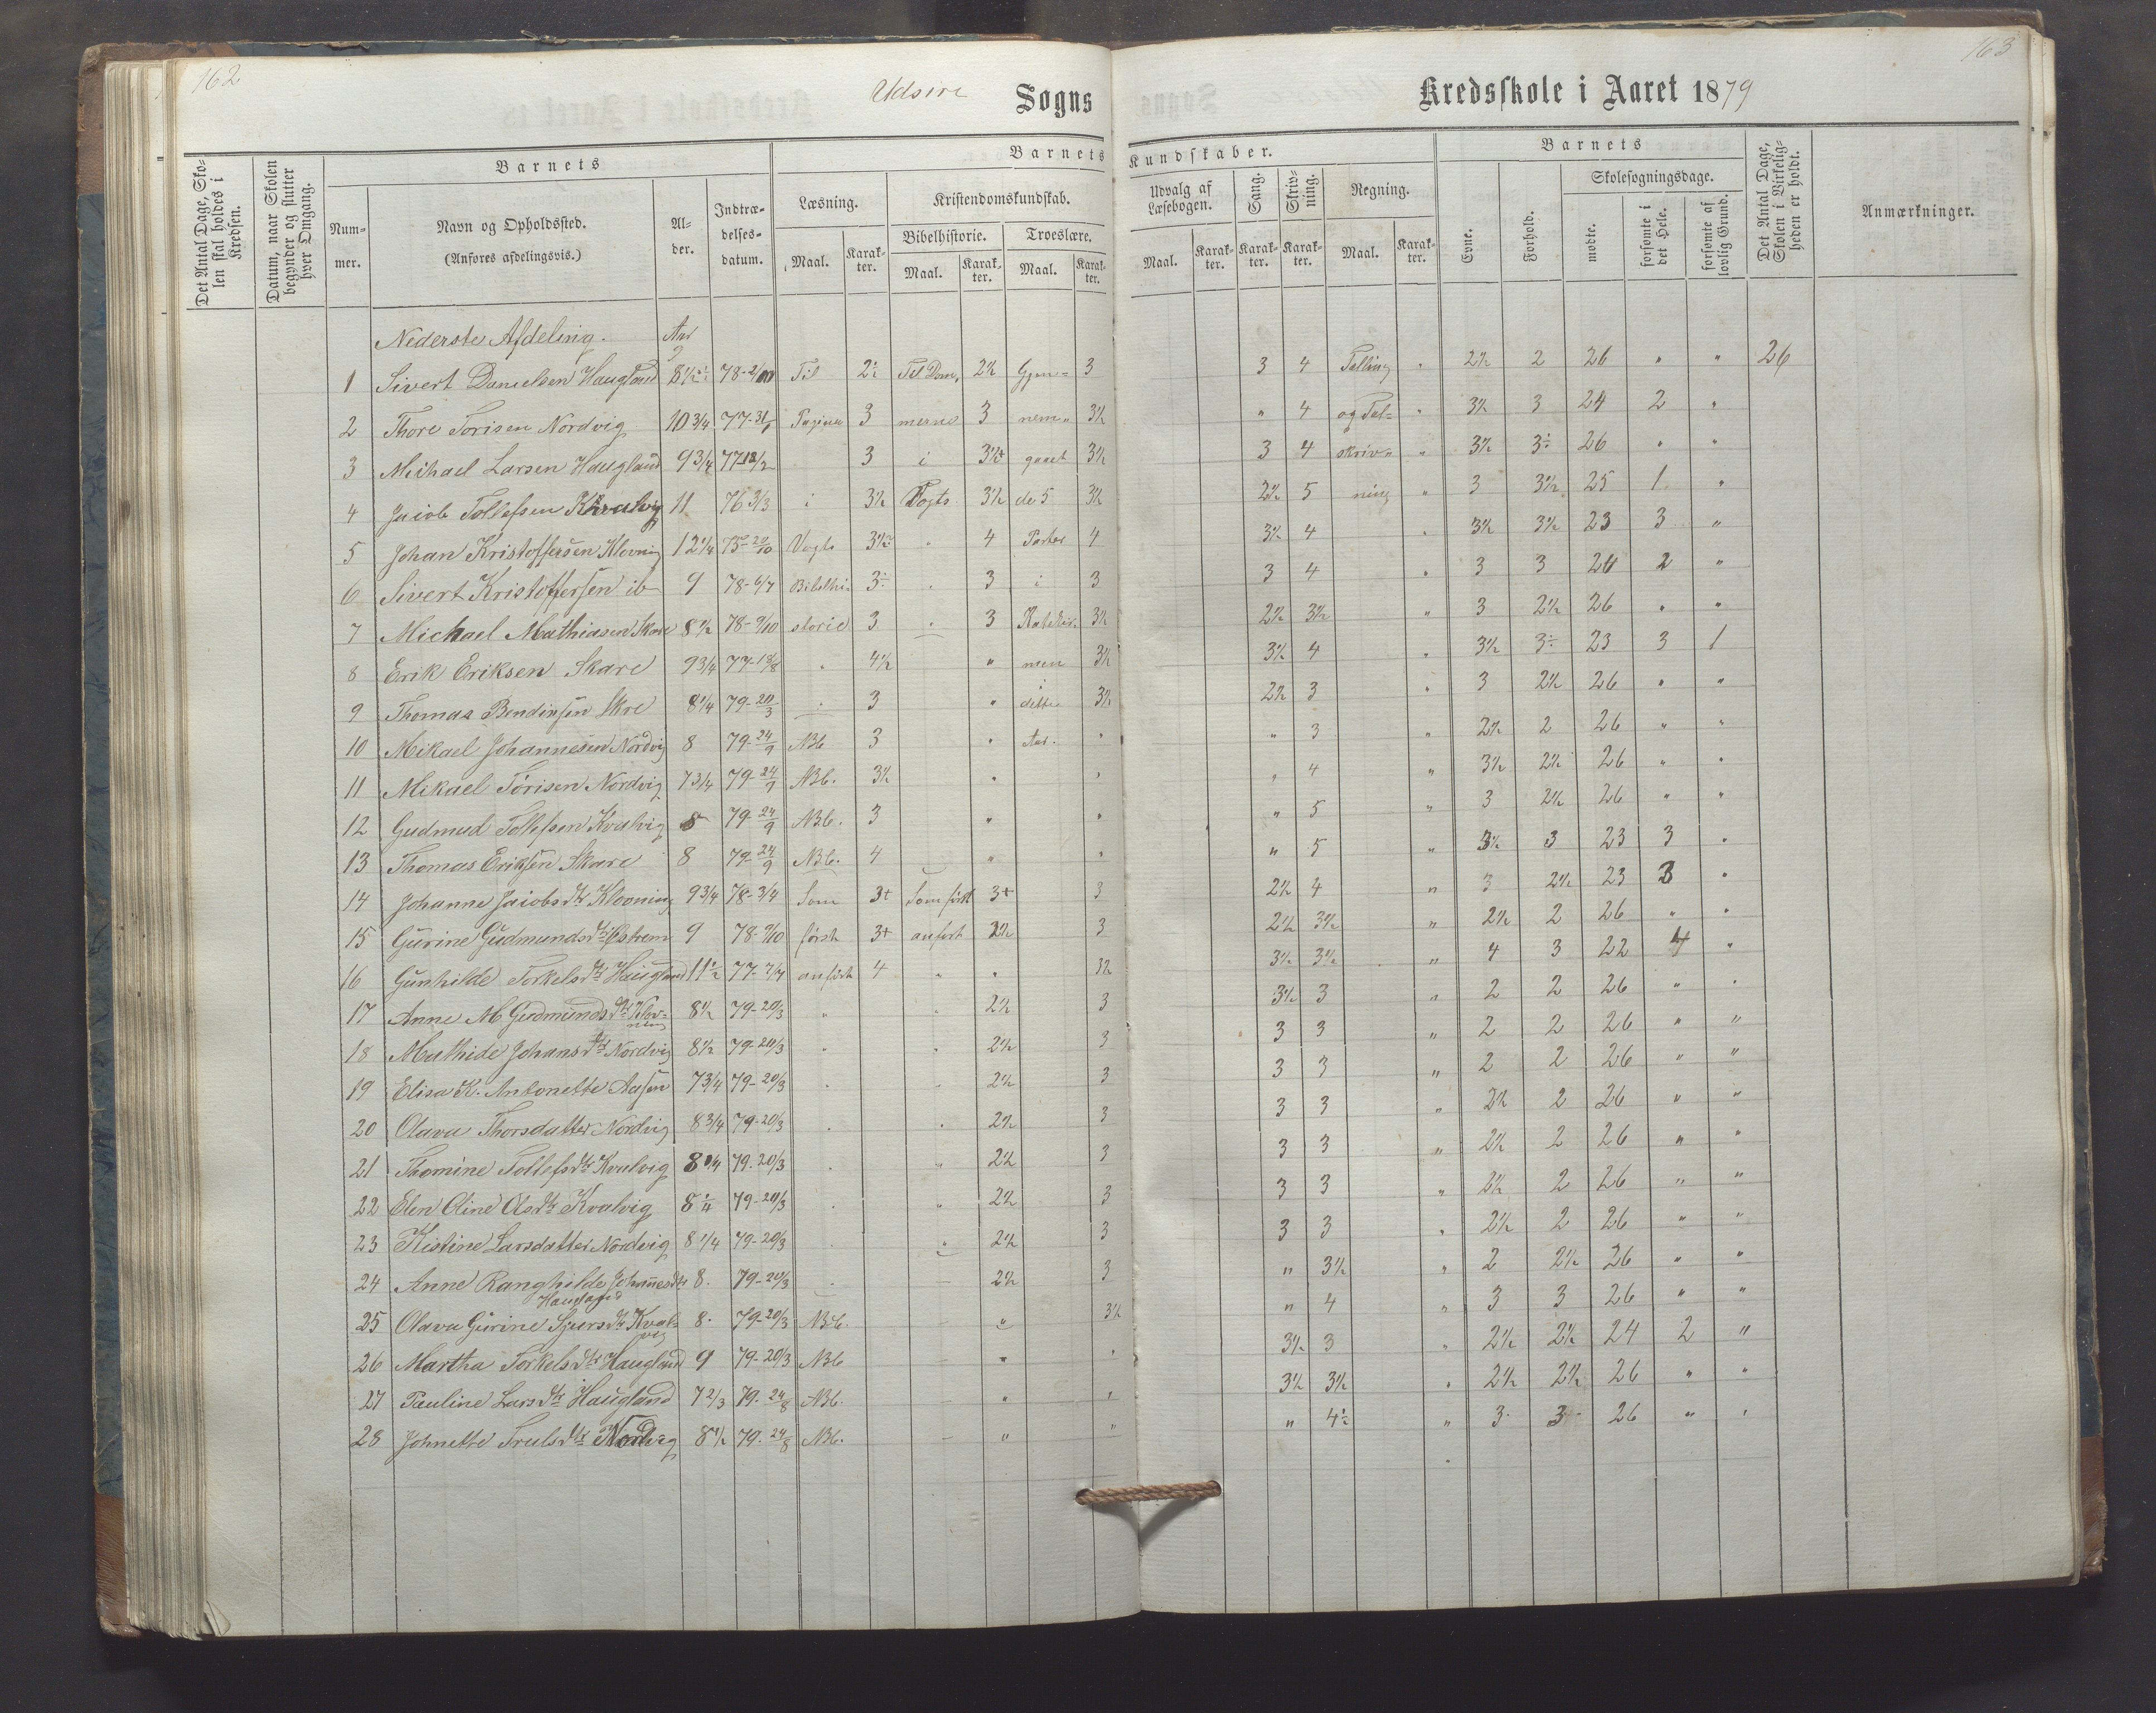 162
163
Udsire Sogns Kredsskole i Aaret 1879
Det Antal Dage, Skolen skal holdes i Kredsen.
Datum, naar Skolen begynder og slutter hver Omgang.
Barnets
Nummer.
Navn og Opholdssted.
(Anføres afdelingsvis.)
Alder.
Indtrædelsesdatum.
Barnets Kundskaber.
Læsning.
Maal.
Karakter.
Kristendomskundskab.
Bibelhistorie.
Maal.
Karakter.
Troeslære.
Maal.
Karakter.
Udvalg af Læsebogen.
Maal.
Karakter.
Sang.
Karakter.
Skrivning.
Karakter.
Regning.
Maal.
Karakter.
Barnets
Evne.
Forhold.
Skolesøgningsdage.
mødte.
forsømte i det Hele.
forsømte af lovlig Grund.
Det Antal Dage, Skolen i Virkeligheden er holdt.
Anmærkninger.
Nederste Afdeling. Aar
1 Sivert Danielsen Haugland 78- Til Til Dom, 2½ Gjen= 3 3 4 Telling " 2½ 2 26 " " 26
2 Thore Torisen Nordvig 10 3/4 77- Pagina 3 merne 3 nem= 3½ " 4 og Tal= " 3½ 3 24 2 "
3 Michael Larsen Haugland 9 3/4 3 i gaaet 3½ 3 4 skriv= " 3½ 3÷ 26 " "
4 Jacob Tollefsen Kvalvig 11 76 3/3 i 3½ Vogts 3½ de 5 3½ 2½ 5 ning " 3 3½ 25 1 "
5 Johan Kristoffersen Klovning 12 1/4 75- 20/10 Vogts " 4 Parter 4 3½ 4 " 3½ 3½ 23 3 "
6 Sivert Kristoffersen ib 9 78- 6/7 Bibelhi= 3÷ " 3 i 3 3 4 " 3 3 24 2 "
7 Michael Mathiasen Skare 8½ 78- 9/10 storie 3 " 3 3½ 2½ 3½ " 3 2½ 26 " "
8 Erik Eriksen Skare 9 3/4 77- " 4½ " men 3½ 3½ 4 " 3½ 3÷ 23 3 1
9 Thomas Skre 8 1/4 79- 20/3 " 3 " dette 3½ 2½ 3 " 3 2½ 26 " "
10 Mikael Johannesen Nordvig 8 79- 24/9 Abc 3 " Aar. " " 3 " 2½ 2 26 " "
11 Mikael Törisen Nordvig 7 3/4 79- 24/9 Abc. 3½ " " " 4 " 3½ 2½ 26 " "
12 Gudmud Tollefsen Kvalvig 8 79- 24/9 Abc. 3 " " " 5 " 3 2½ 26 " "
13 Thomas Eriksen Skare 8 79- 24/9 Abc. 4 " " " 5 " 3½ 3 23 3 "
14 Johanne Jacobsdtr Klovning 9 3/4 78- 3/4 Som 3+ Som först 3+ 3 2½ 4 " 3 2½ 23 3 "
15 Gurine Gudmundsdtr Östrem 9 78- 9/10 först 3+ anfört 2½ 3 2½ 3½ " 2½ 2 26 " "
16 Gunhilde Torkelsdtr Haugland 11½ 77- 7/7 anfört 4 " " 3½ 3½ 3½ " 4 3 22 4 "
17 Anne M Gudmundsdtr Klov=
ning 8½ 79- 20/3 " " 2½ 3 3½ 3 " 2 2 26 " "
18 Mathide Johansdtr Nordvig 8½ 79- 20/3 " " 2½ 3 3 3 " 2 2 26 " "
19 Elisa K. Antonette Aasen 7 3/4 79- 20/3 " " 2½ 3 3 3 " 2 2 26 " "
20 Olava Thorsdatter Nordvig 8 3/4 79- 20/3 " " 2½ 3 3 3 " 2½ 2 26 " "
21 Thomine Tollefsdtr Kvalvig 8 1/4 79- 20/3 " " 2½ 3 3 3 " 2½ 2 26 " "
22 Elen Oline Olsdtr Kvalvig 8 1/4 79- 20/3 " " 2½ 3 3 3 " 2½ 2 26 " "
23 Kistine Larsdatter Nordvig 8 1/4 79- 20/3 " " 2½ 3 3 3 " 2½ 2 26 " "
24 Anne Ranghilde Johannesdtr
Haugland 8. 79- 20/3 " 2½ 3 " 3½ " 2 2½ 26 " "
25 Olava Gurine Sjursdtr Kval=
vig 8. 79- 20/3 Abc. " 3½ " 4 " 3 3 26 " "
26 Martha Torkelsdtr Haugland 9 79- 20/3 Abc " " 3½ 3 " 2½ 2½ 24 2 "
27 Pauline Larsdtr Haugland 7 2/3 79- 24/8 Abc. " " 3½ 3½ " 2½ 2½ 26 " "
28 Johnette Trulsdtr Nordvig 8½ 79- 24/8 Abc. " " " 4½ " 3 3 26 " "